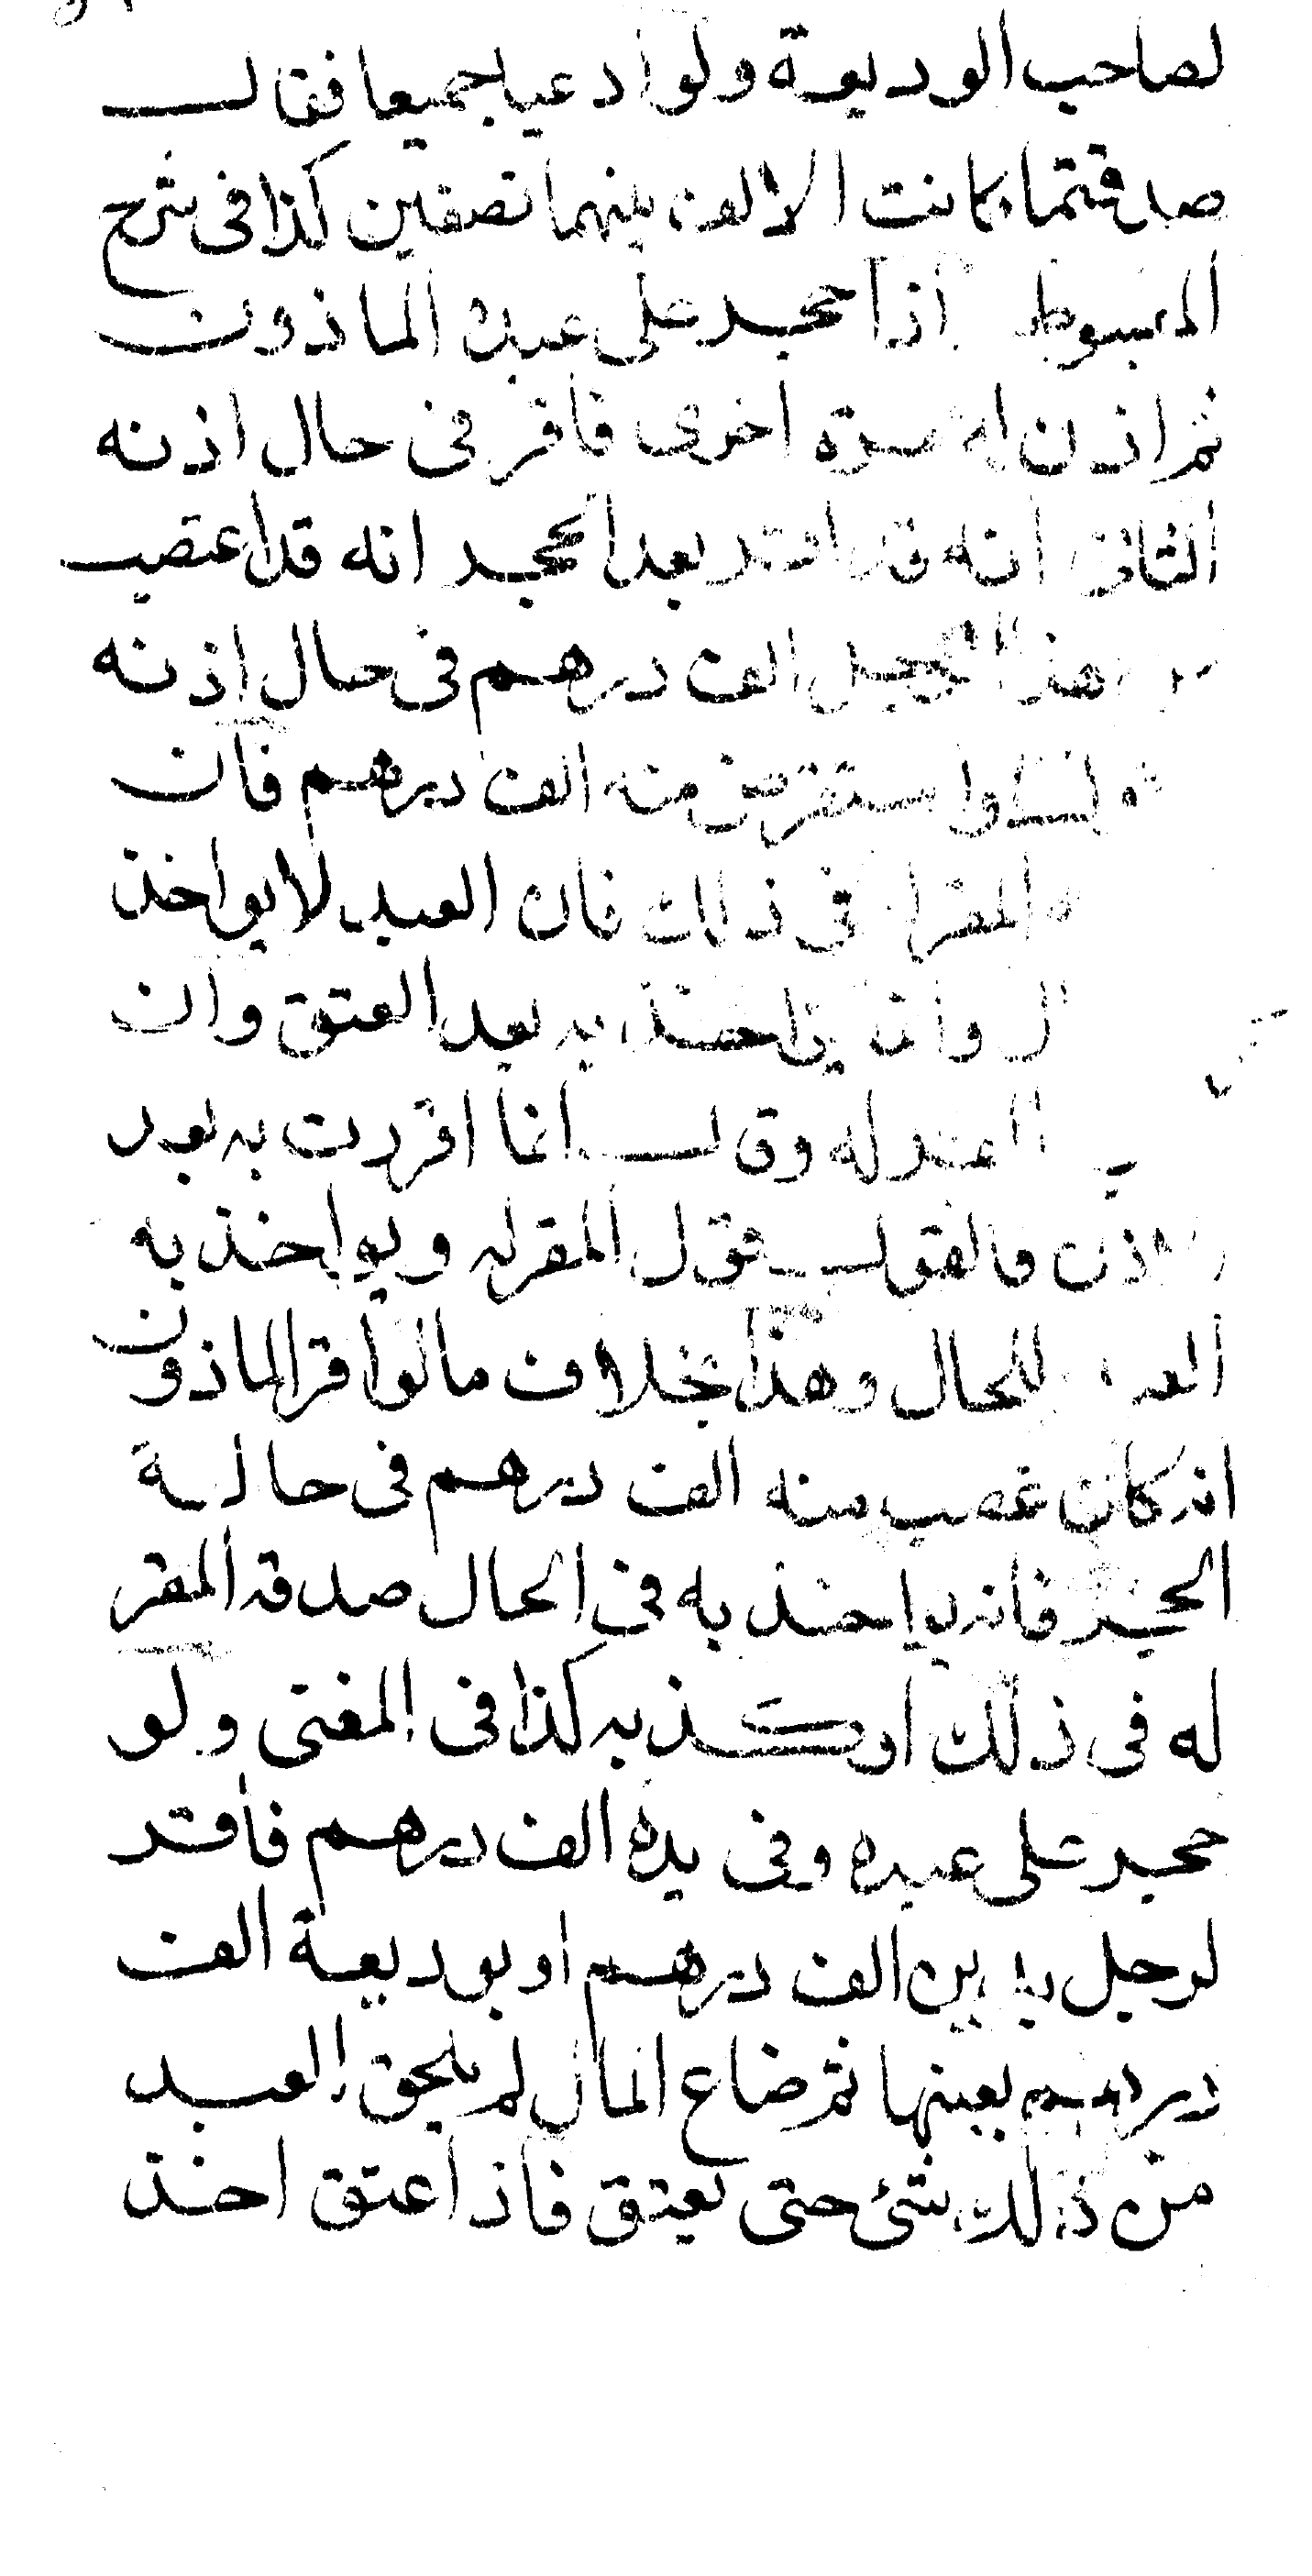 لصاحب الوديعة ولو ادعيا جميعا فقال
صدقتما كانت الالف بينهما نصفين كذا فى شرح
المبسوط اذا حجر على عبده الماذون
ثم اذن له مرة اخرى فاقر فى حال اذنه
الثانى انه قد اقر بعد الحجر انه قد اغتصب
من هذا الرجل الف درهم فى حال اذنه
الاول واستقرض منه الف درهم فان
المقر له فى ذلك فان العبد لا يواخذ
وانما يواخذ به بعد العتق وان
المقر له وقال انما اقررت به بعد
الاذن فالقول قول المقر له ويواخذ به
العبد للحال وهذا بخلاف ما لو اقر الماذون
انه كان غصب منه الف درهم فى حالة
الحجر فانه يواخذ به فى الحال صدقه المقر
له فى ذلك او كذبه كذا فى المغنى ولو
حجر على عبده وفى يده الف درهم فاقر
لرجل بدين الف درهم او بوديعة الف
درهم بعينها ثم ضاع المال لم يلحق العبد
من ذلك شئ حتى يعتق فاذا عتق اخذ